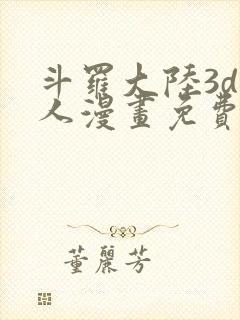 斗羅大陸3d
人漫畫免費
董麗芳